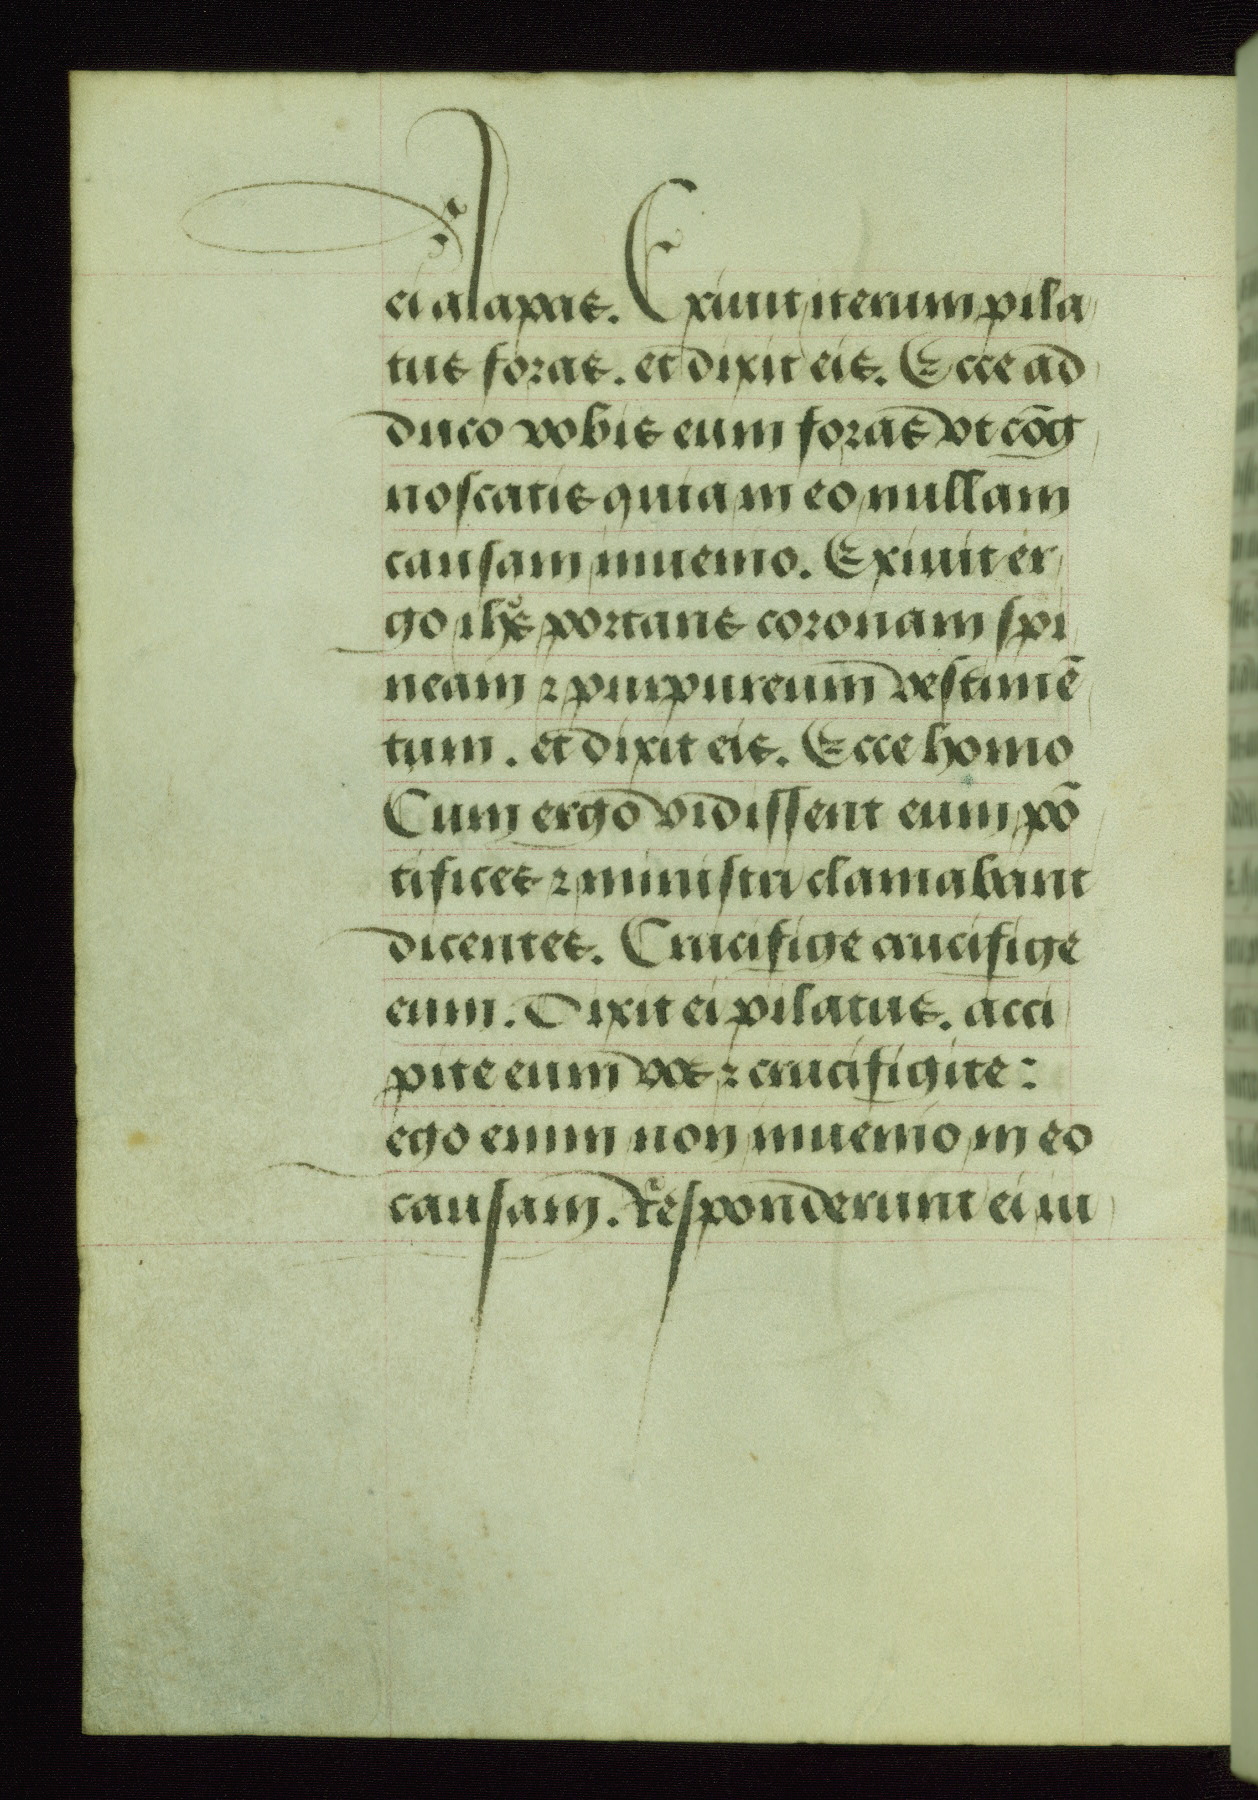 ei alapas. Exiuit iterum pila
tus foras. et dixit eis. Ecce ad
duco vobis eum foras vt cōg
noscatis quia in eo nullam
causam inuenio. Exiuit er
go ihs̄ portans coronam spi
neam ⁊ purpureum vestimē
tum. et dixit eis. Ecce homo
Cum ergo vidissent eum pō
tifices ⁊ ministri clamabant
dicentes. Crucifige crucifige
eum. Dixit ei pilatus. acci
pite eum vos ⁊ crucifigite:
ego enim non inuenio in eo
causam. Responderunt ei iu